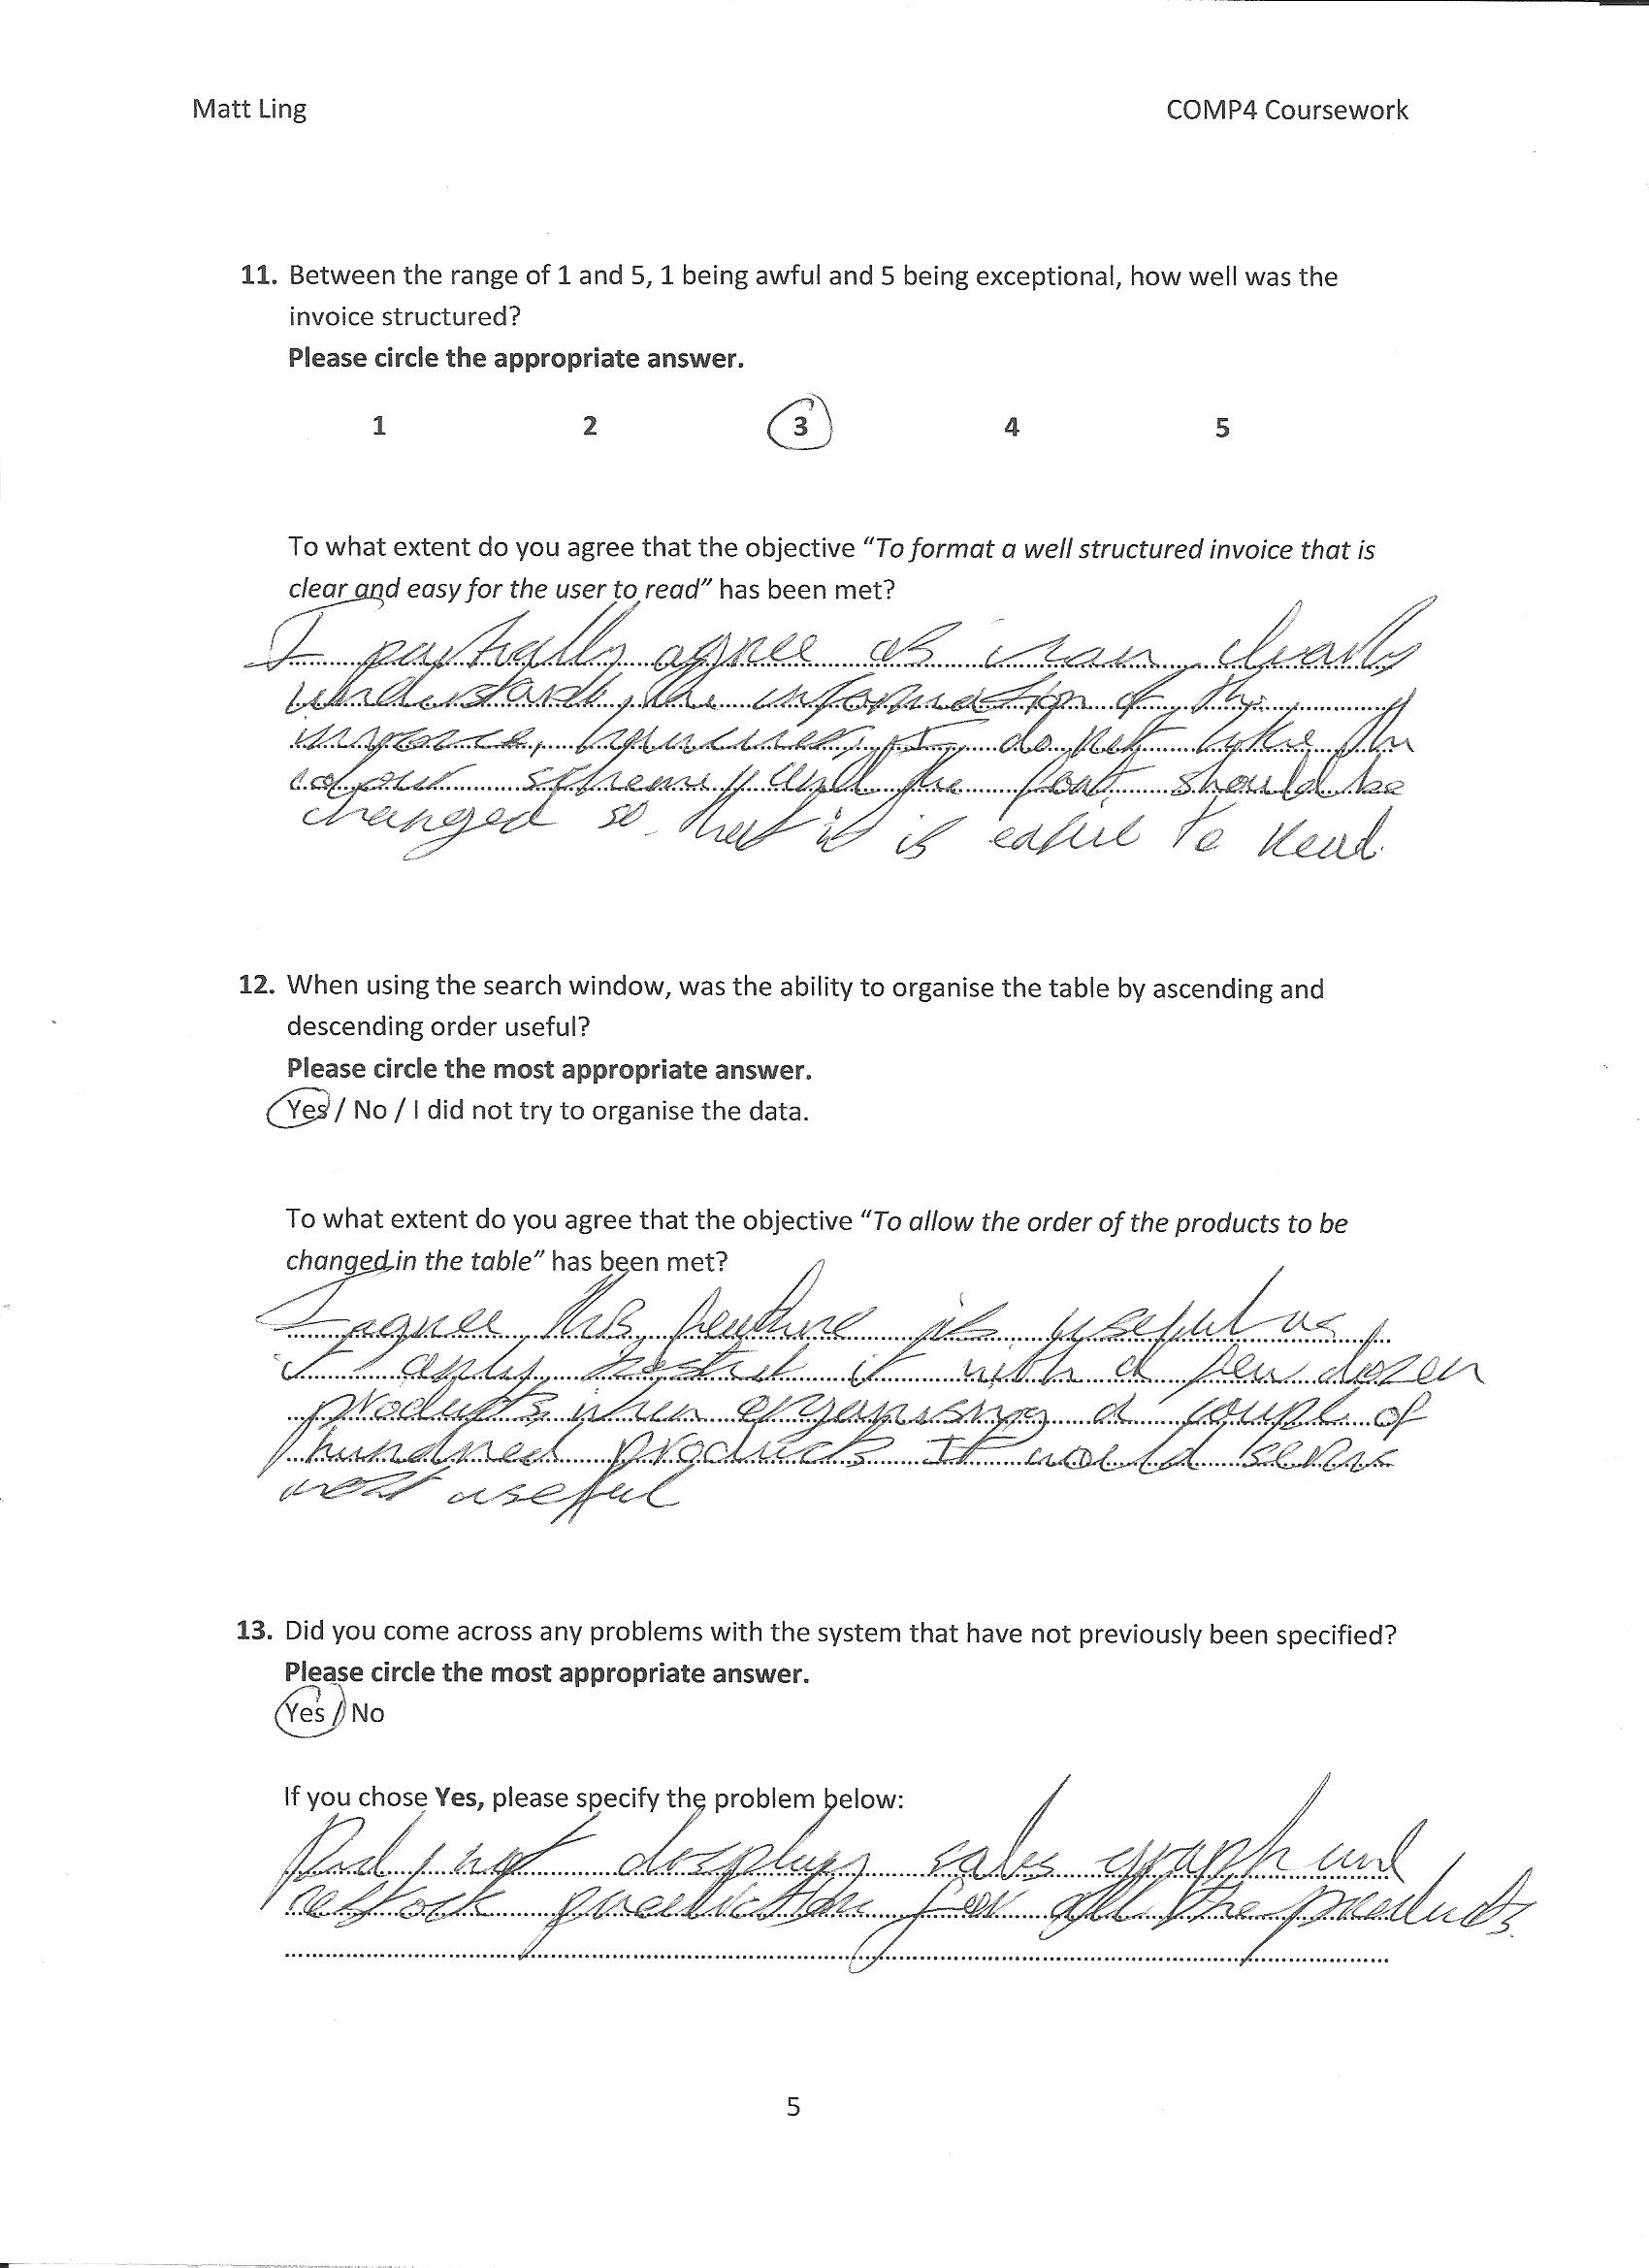 Matt Ling
COMP4 Coursework
11. Between the range of 1 and 5, 1 being awful and 5 being exceptional, how well was the
invoice structured?
Please circle the appropriate answer.
1 2 3 4 5
To what extent do you agree that the objective “To format a well structured invoice that is
clear and easy for the user to read” has been met?
I partially agree as i can clearly
understand the information of the
invoice, however, I do not like the
colour scheme and the font should be
changed so that it is easier to read.
12. When using the search window, was the ability to organise the table by ascending and
descending order useful?
Please circle the most appropriate answer.
Yes / No / I did not try to organise the data.
To what extent do you agree that the objective “To allow the order of the products to be
changed in the table” has been met?
I agree this feature is useful as
I only tested it with a few dozen
products, when organising a couple of
hundred products it would
most useful
13. Did you come across any problems with the system that have not previously been specified?
Please circle the most appropriate answer.
Yes / No
If you chose Yes, please specify the problem below:
Did not display sales graph and
restock prediction for all the products.
5